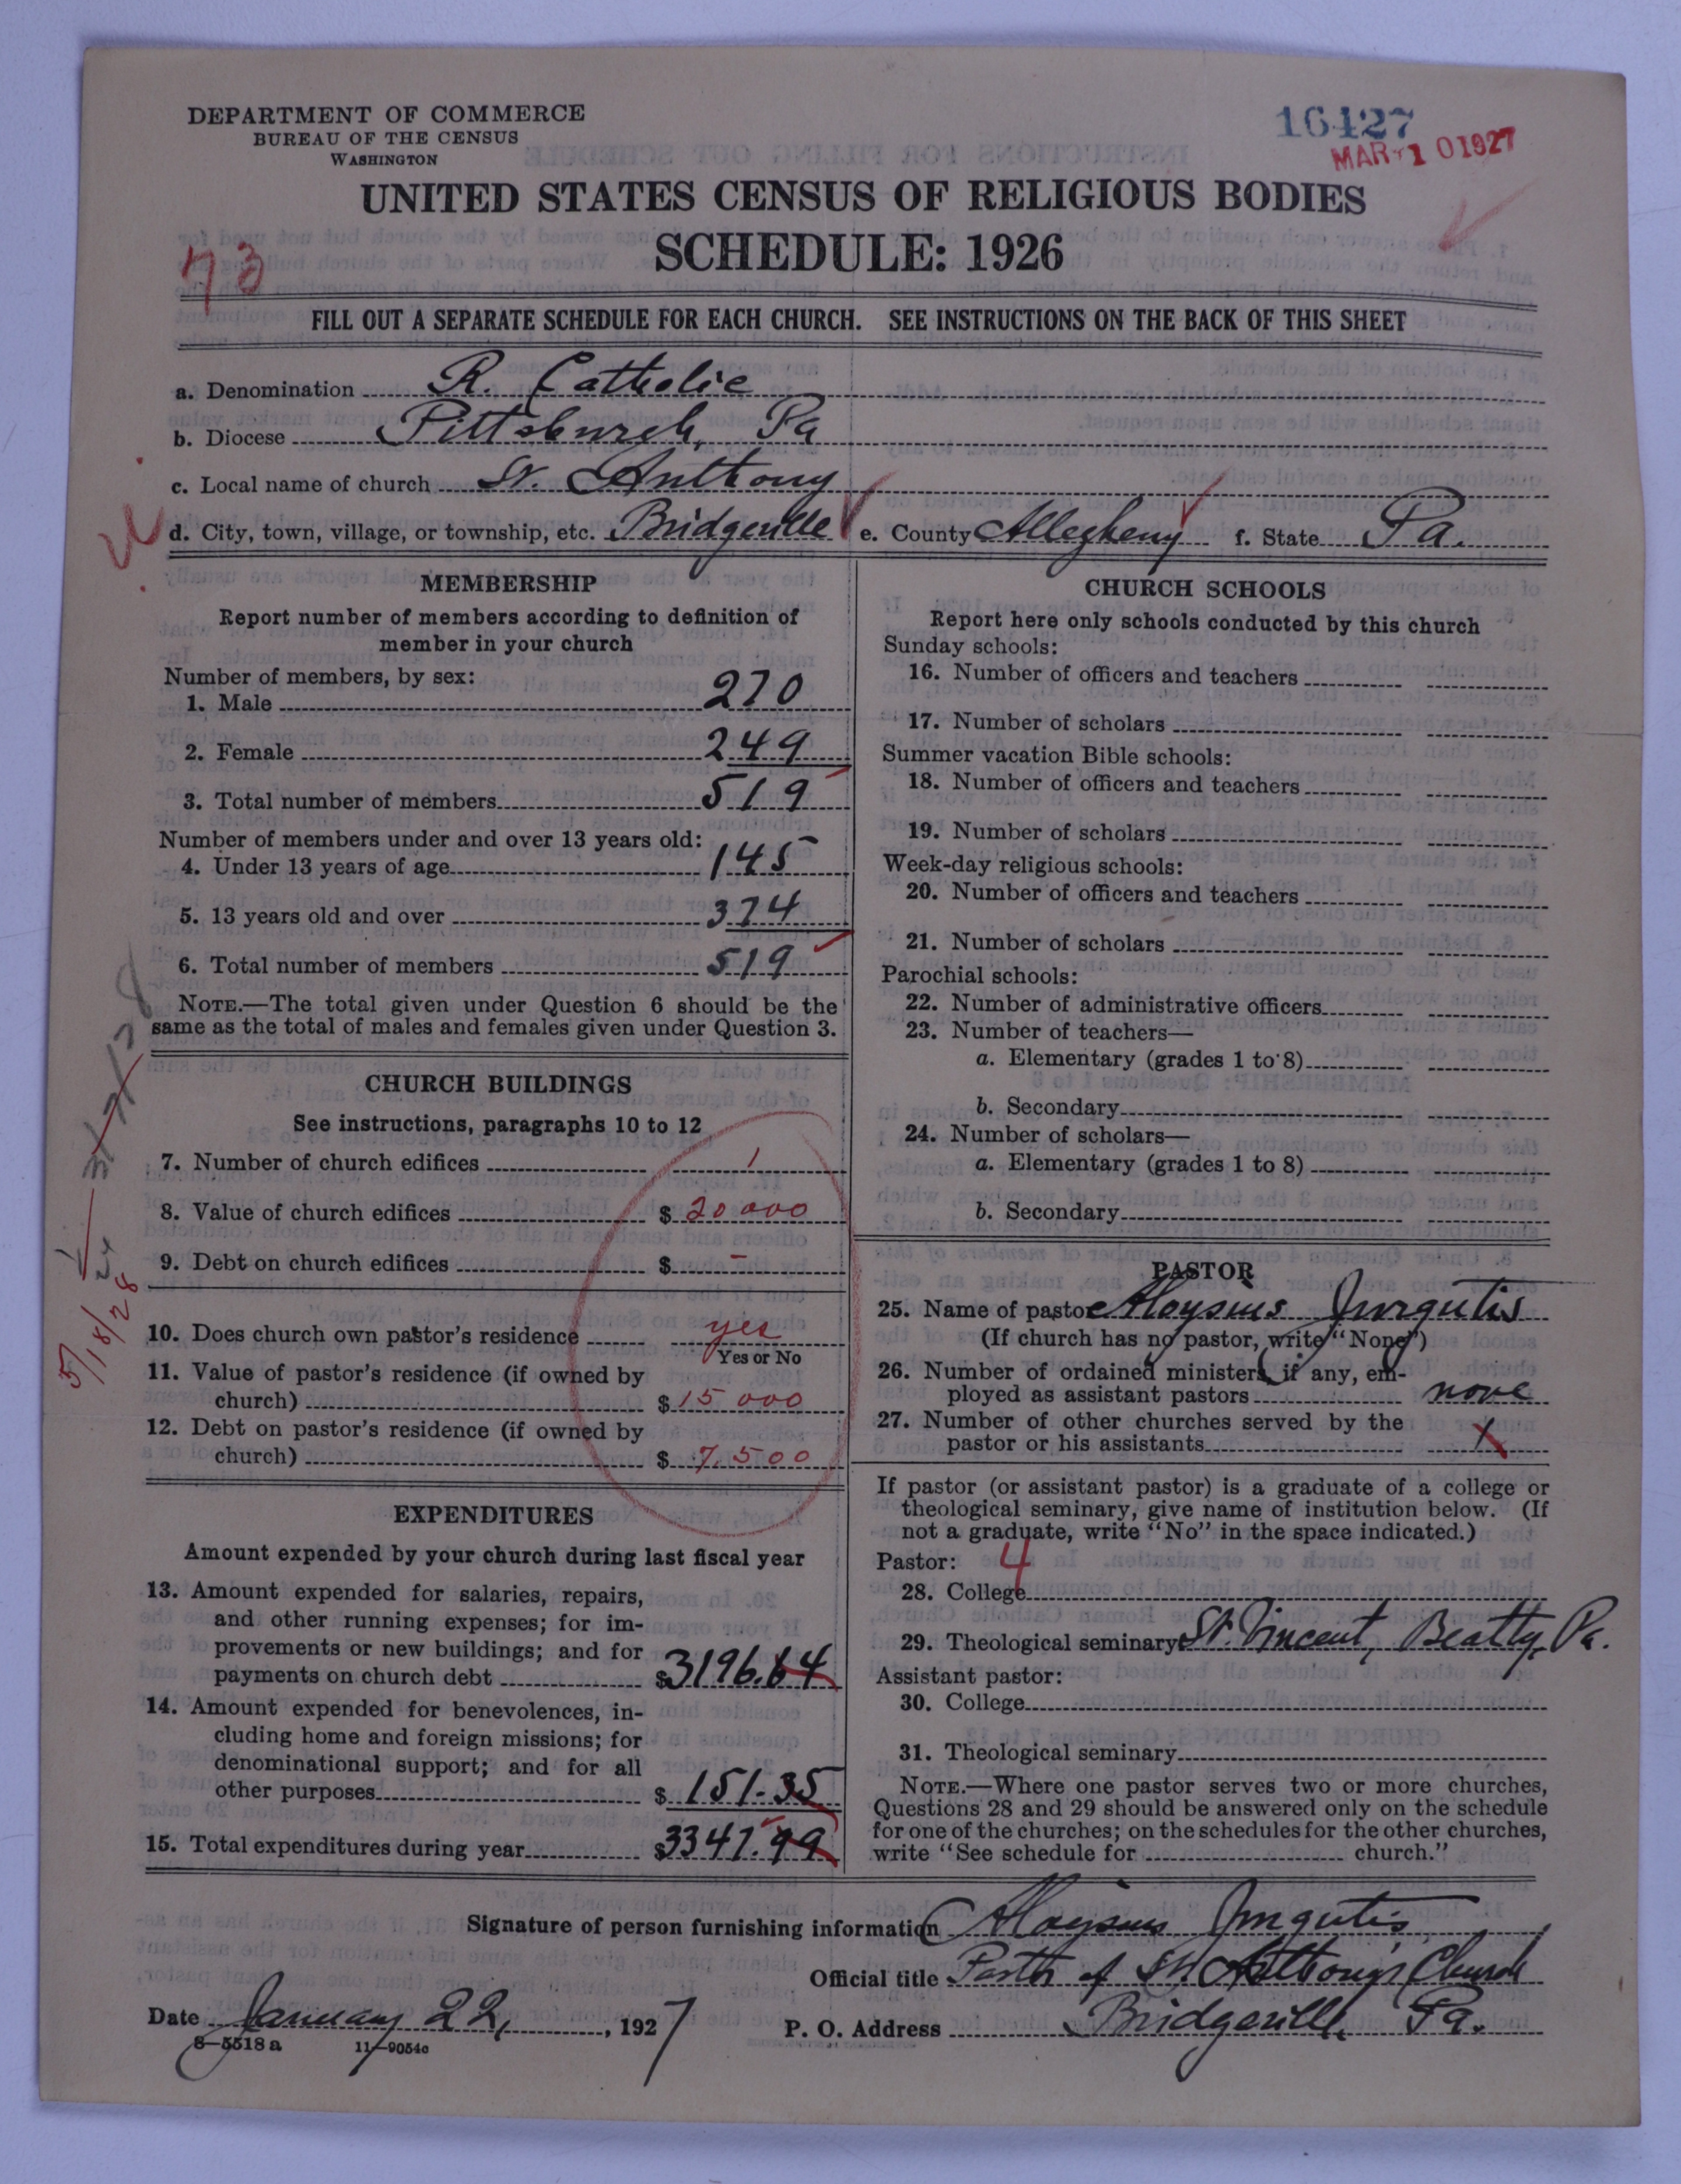 DEPARTMENT OF COMMERCE
BUREAU OF THE CENSUS
WASHINGTON
16427
MAR 10 1927
UNITED STATES CENSUS OF RELIGIOUS BODIES
SCHEDULE: 1926
73
FILL OUT A SEPARATE SCHEDULE FOR EACH CHURCH. SEE INSTRUCTIONS ON THE BACK OF THIS SHEET
a. Denomination R. Catholic
b. Diocese Pittsburgh, Pa
c. Local name of church St. Anthony
d. City, town, village, or township, etc. Bridgeville e. County Allegheny f. State Pa.
MEMBERSHIP
Report number of members according to definition of
member in your church
Number of members, by sex:
1. Male 270
2. Female 249
3. Total number of members 519
Number of members under and over 13 years old:
4. Under 13 years of age 145
5. 13 years old and over 374
6. Total number of members 519
NOTE.—The total given under Question 6 should be the
same as the total of males and females given under Question 3.
CHURCH BUILDINGS
See instructions, paragraphs 10 to 12
7. Number of church edifices 1
8. Value of church edifices $ 20000
9. Debt on church edifices $ –
10. Does church own pastor's residence yes
Yes or No
11. Value of pastor's residence (if owned by
church) $ 15 000
12. Debt on pastor's residence (if owned by
church) $ 7.500
5/18/28
EXPENDITURES
Amount expended by your church during last fiscal year
13. Amount expended for salaries, repairs,
and other running expenses; for im-
provements or new buildings; and for
payments on church debt $3196.64
14. Amount expended for benevolences, in-
cluding home and foreign missions; for
denominational support; and for all
other purposes $ 151.35
15. Total expenditures during year $3347.99
CHURCH SCHOOLS
Report here only schools conducted by this church
Sunday schools:
16. Number of officers and teachers
17. Number of scholars
Summer vacation Bible schools:
18. Number of officers and teachers
19. Number of scholars
Week-day religious schools:
20. Number of officers and teachers
21. Number of scholars
Parochial schools:
22. Number of administrative officers
23. Number of teachers—
a. Elementary (grades 1 to 8)
b. Secondary
24. Number of scholars—
a. Elementary (grades 1 to 8)
b. Secondary
PASTOR
25. Name of pastor Aloysius Jurgutis
(If church has no pastor, write "None")
26. Number of ordained ministers, if any, em-
ployed as assistant pastors none
27. Number of other churches served by the
pastor or his assistants X
If pastor (or assistant pastor) is a graduate of a college or
theological seminary, give name of institution below. (If
not a graduate, write "No" in the space indicated.)
Pastor: 4
28. College
29. Theological seminary St. Vincent, Beatty, Pa.
Assistant pastor:
30. College
31. Theological seminary
NOTE.—Where one pastor serves two or more churches,
Questions 28 and 29 should be answered only on the schedule
for one of the churches; on the schedules for the other churches,
write "See schedule for church."
Signature of person furnishing information Aloysius Jurgutis
Official title Pastor of St. Anthony's Church
Date January 22, 1927 P. O. Address Bridgeville, Pa.
8—5518 a 11—9054c